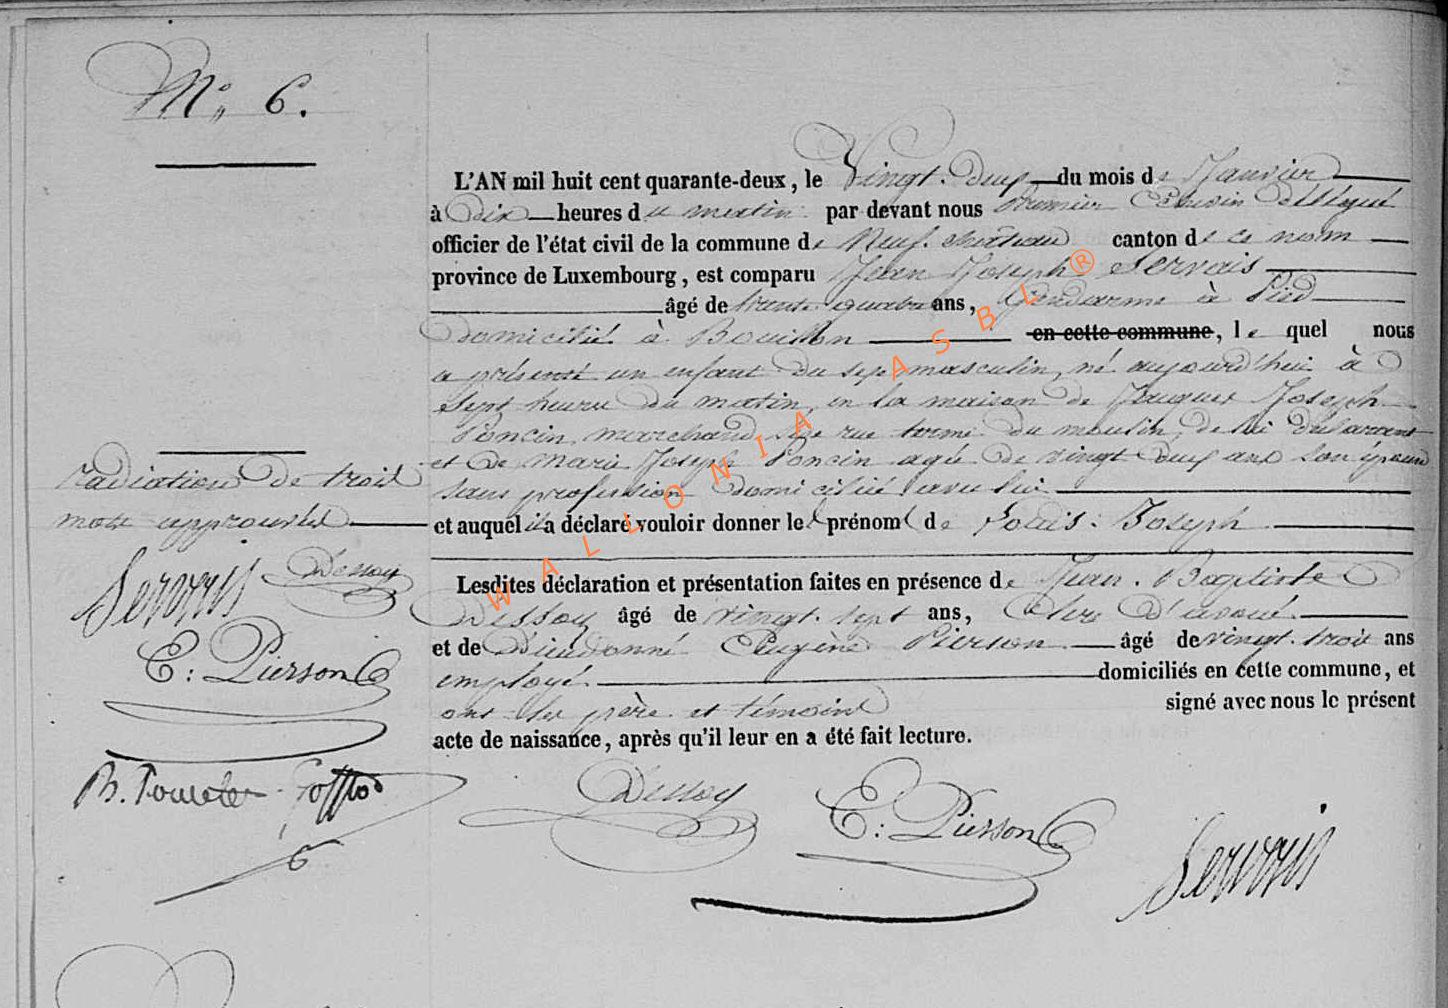 N° 6.
L'AN mil huit cent quarante-deux, le Vingt-deux du mois de Janvier
à Dix heures du matin par devant nous Premier Echevin délégué
officier de l'état civil de la commune de Neufchateau canton de ce nom
province de Luxembourg, est comparu Jean Joseph Servais
âgé de trente quatre ans, Gendarme à Pied
domicilié à Bouillon en cette commune, le quel nous
a présenté un enfant du sexe masculin, né aujourd'hui à
Sept heures du matin, en la maison de Jacques Joseph
Poncin, marchand, rue du moulin, de lui déclarant
et de Marie Joseph Poncin agée de vingt deux ans son épouse
sans profession domiciliée avec lui
et auquel il a déclaré vouloir donner le prénom de Louis-Joseph
Lesdites déclaration et présentation faites en présence de Jean-Baptiste
Dessoy âgé de vingt-sept ans, Clerc d'avoué
et de Dieudonné Eugène Pierson âgé de vingt-trois ans
employé domiciliés en cette commune, et
ont les père et témoins signé avec nous le présent
acte de naissance, après qu'il leur en a été fait lecture.
Radiation de trois
mots approuvées
Servais Dessoy
E: Pierson
Dessoy E: Pierson Servais
WALLONIA ASBL ®